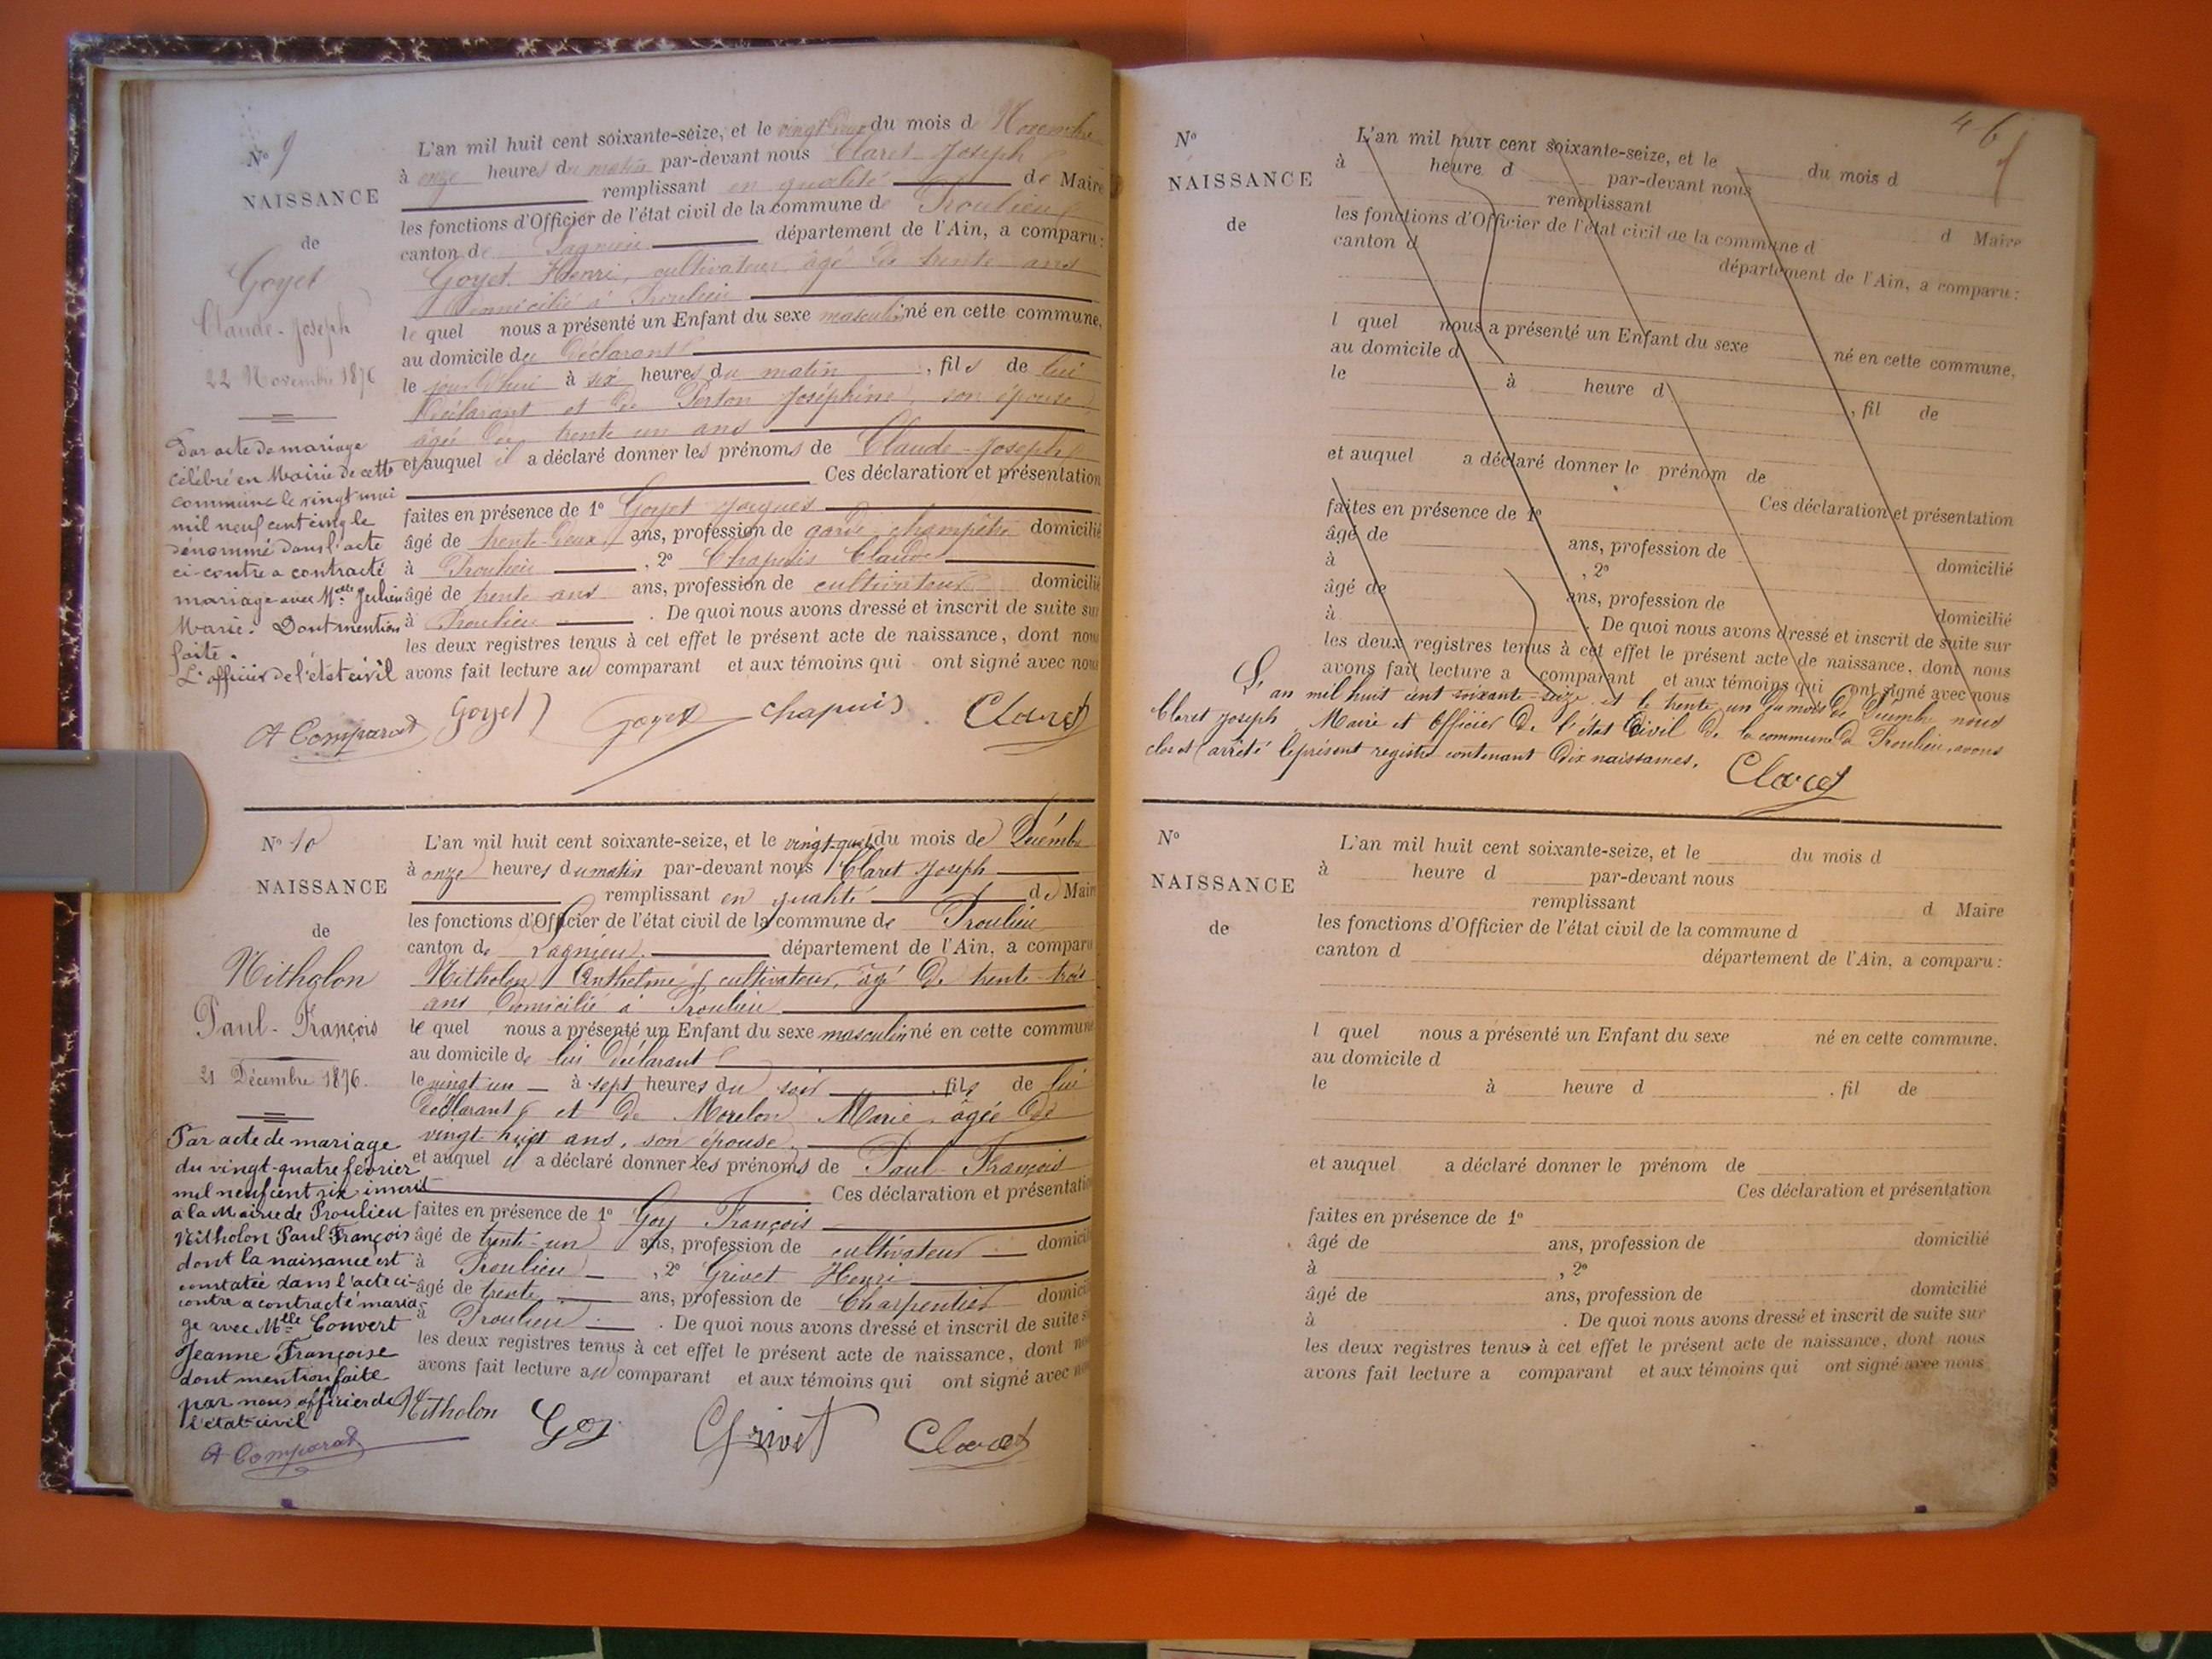 N° 9
NAISSANCE
de
Goyet
Claude-Joseph
22 Novembre 1876
Par acte de mariage
célébré en Mairie de cette
commune le vingt mai
mil neuf cent cinq le
dénommé dans l'acte
ci-contre a contracté
mariage avec Melle Julien
Marie. Dont mention
faite.
L'officier de l'état civil
A Comparat
L'an mil huit cent soixante-seize, et le vingt deux du mois de Novembre
à onze heures du matin par-devant nous Claret Joseph
remplissant en qualité de Maire
les fonctions d'Officier de l'état civil de la commune de Proulieu
canton de Lagnieu département de l'Ain, a comparu:
Goyet Henri, cultivateur âgé de trente ans
domicilié à Proulieu
le quel nous a présenté un Enfant du sexe masculin né en cette commune,
au domicile du déclarant
le jour d'hui à six heures du matin, fils de lui
déclarant et de Joséphine, son épouse
âgée de trente un ans
et auquel il a déclaré donner les prénoms de Claude-Joseph
Ces déclaration et présentation
faites en présence de 1° Goyet Jacques
âgé de trente-deux ans, profession de garde-champêtre domicilié
à Proulieu, 2° Chapuis Claude
âgé de trente ans ans, profession de cultivateur domicilié
à Proulieu. De quoi nous avons dressé et inscrit de suite sur
les deux registres tenus à cet effet le présent acte de naissance, dont nous
avons fait lecture au comparant et aux témoins qui ont signé avec nous
Goyet Goyet Chapuis Claret
N° 10
NAISSANCE
de
Nitholon
Paul-François
21 Décembre 1876.
Par acte de mariage
du vingt-quatre février
mil neuf cent six inscrit
à la Mairie de Proulieu
Nitholon Paul François
dont la naissance est
constatée dans l'acte ci-
contre a contracté maria-
ge avec Melle Convert
Jeanne Françoise
dont mention faite
par nous officier de
l'état-civil
A Comparat
L'an mil huit cent soixante-seize, et le du mois de Décembre
à onze heures du matin par-devant nous Claret Joseph
remplissant en qualité de Maire
les fonctions d'Officier de l'état civil de la commune de Proulieu
canton de Lagnieu département de l'Ain, a comparu
Nitholon Anthelme cultivateur, âgé de trente-trois
ans domicilié à Proulieu
le quel nous a présenté un Enfant du sexe masculin né en cette commune
au domicile de lui déclarant
le vingt un à sept heures du soir, fils de lui
déclarant et de Morelon Marie âgée de
vingt-huit ans, son épouse
et auquel il a déclaré donner les prénoms de Paul-François
Ces déclaration et présentation
faites en présence de 1° Goy François
âgé de trente-un ans, profession de cultivateur domicilié
à Proulieu, 2° Grivet Henri
âgé de trente ans, profession de Charpentier domicilié
à Proulieu. De quoi nous avons dressé et inscrit de suite sur
les deux registres tenus à cet effet le présent acte de naissance, dont nous
avons fait lecture au comparant et aux témoins qui ont signé avec nous
Nitholon Goy Grivet Claret
46
N°
NAISSANCE
de
L'an mil huit cent soixante-seize, et le du mois d
à heure d par-devant nous
remplissant d Maire
les fonctions d'Officier de l'état civil de la commune d
canton d département de l'Ain, a comparu:
l quel nous a présenté un Enfant du sexe né en cette commune,
au domicile d
le à heure d, fil de
et auquel a déclaré donner le prénom de
Ces déclaration et présentation
faites en présence de 1°
âgé de ans, profession de domicilié
à, 2°
âgé de ans, profession de domicilié
à. De quoi nous avons dressé et inscrit de suite sur
les deux registres tenus à cet effet le présent acte de naissance, dont nous
avons fait lecture a comparant et aux témoins qui ont signé avec nous
L'an mil huit cent soixante-seize et le trente-un du mois de Décembre nous
Claret Joseph Maire et Officier de l'état Civil de la commune de Proulieu, avons
clos et arrêté le présent registre contenant dix naissances.
Claret
N°
NAISSANCE
de
L'an mil huit cent soixante-seize, et le du mois d
à heure d par-devant nous
remplissant d Maire
les fonctions d'Officier de l'état civil de la commune d
canton d département de l'Ain, a comparu:
l quel nous a présenté un Enfant du sexe né en cette commune.
au domicile d
le à heure d. fil de
et auquel a déclaré donner le prénom de
Ces déclaration et présentation
faites en présence de 1°
âgé de ans, profession de domicilié
à, 2°
âgé de ans, profession de domicilié
à. De quoi nous avons dressé et inscrit de suite sur
les deux registres tenus à cet effet le présent acte de naissance, dont nous
avons fait lecture a comparant et aux témoins qui ont signé avec nous